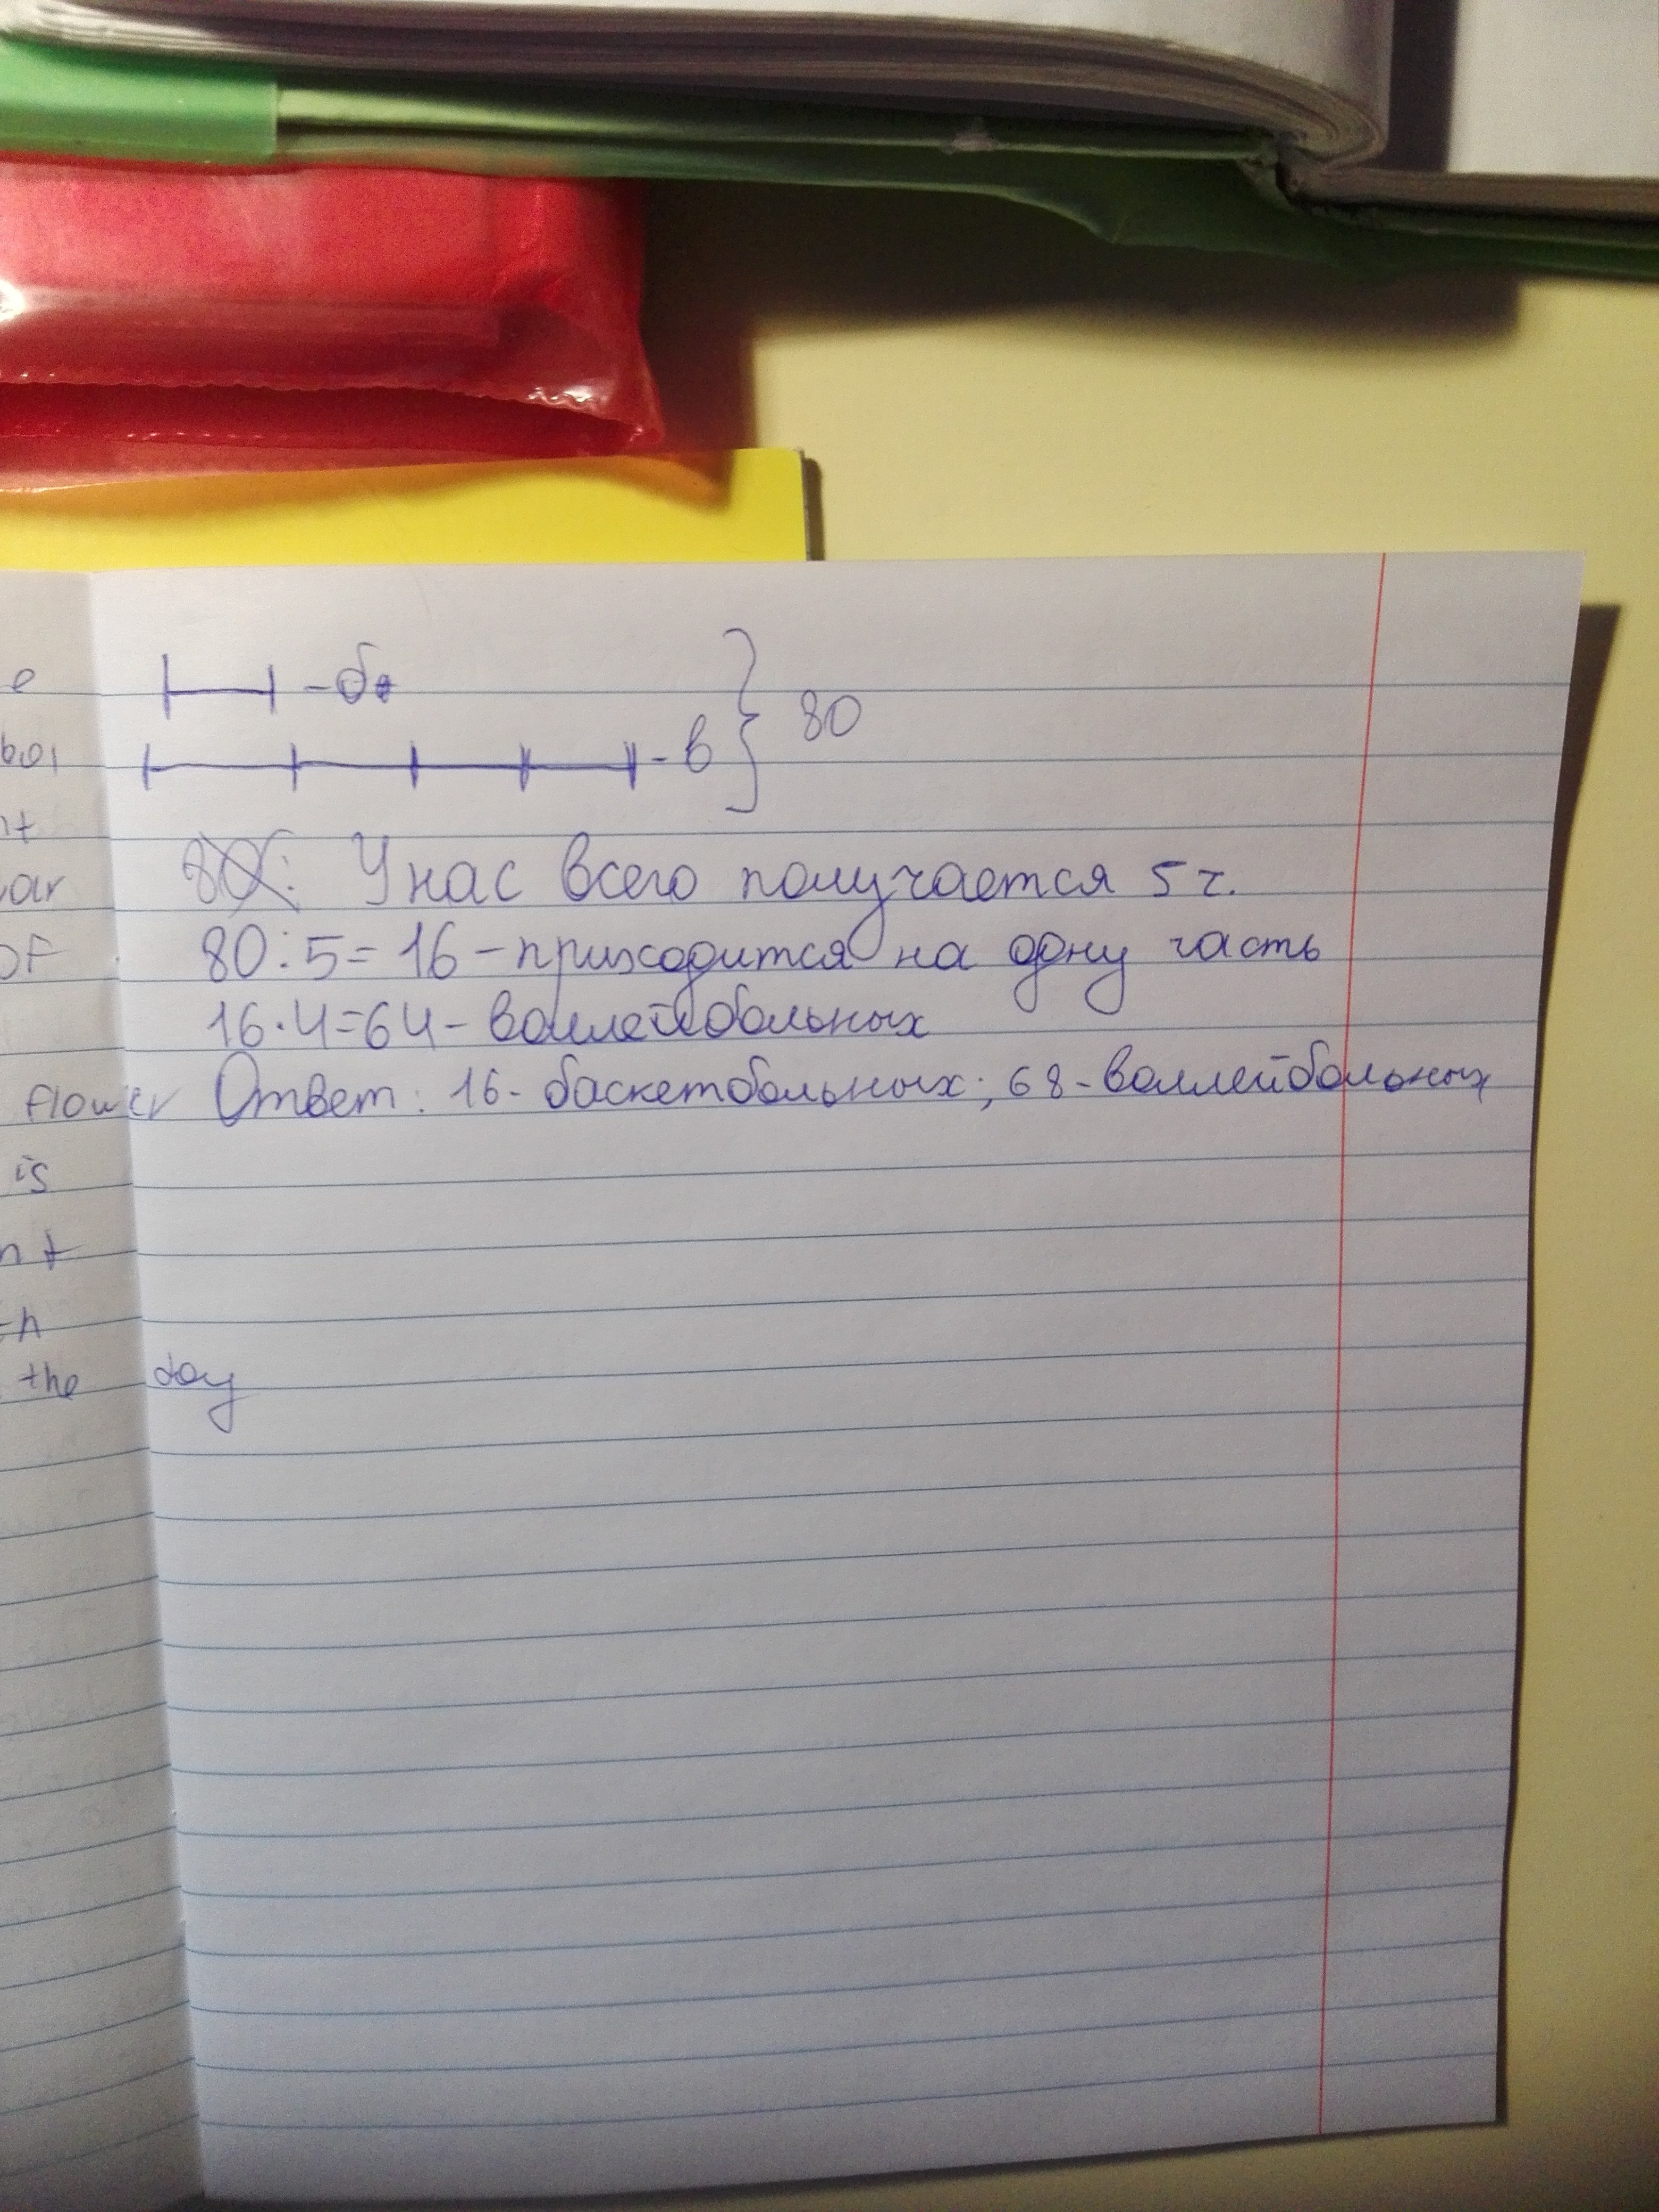 е
-б
-в } 80
У нас всего получается 5 ч.
ar
80:5=16-приходится на одну часть
OF
16·4=64- воллейбольных
flower Ответ: 16- баскетбольных; 68-воллейбольных
is
the day